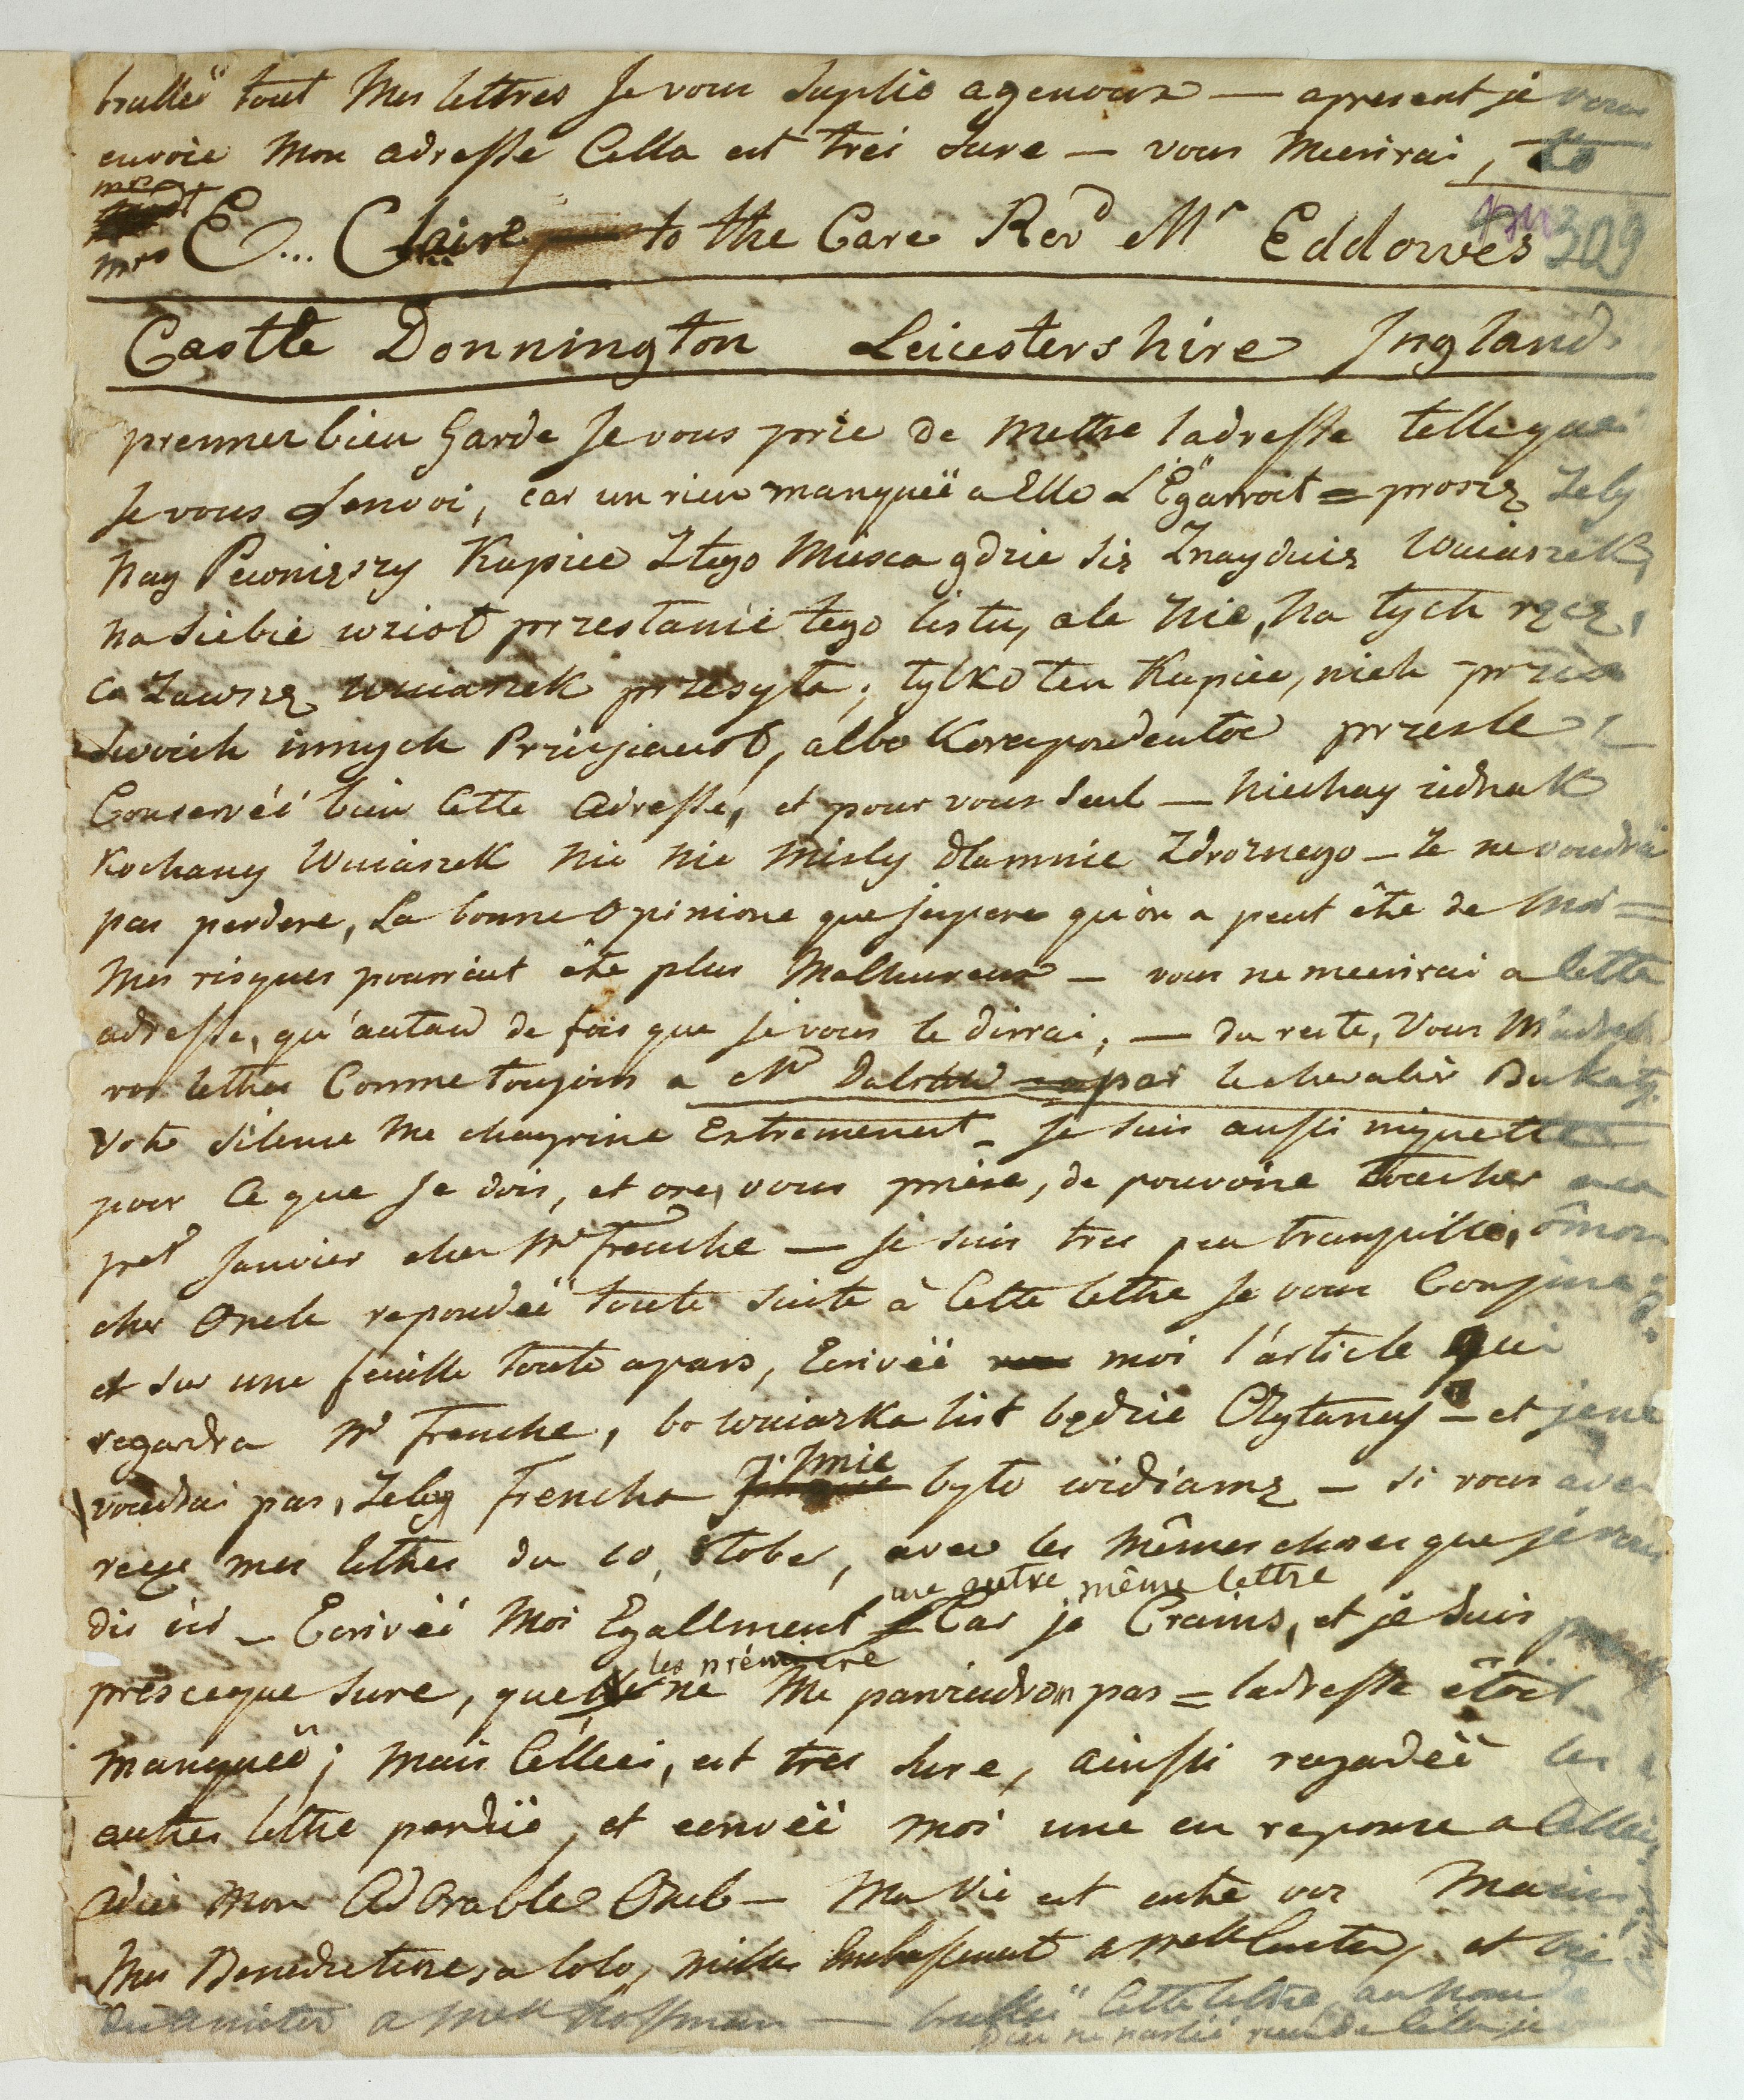 brulleé tout Mes lettres Je vous Suplie agenoux — apresent je vous
envoie Mon adresse Cella est trés sure — vous Meenrai, to
mrs
mrs E... Claire to the Care Revd Mr Eddowes 309
Castle Donnington Leicestershire Ingland
prennez bien Garde Je vous prie de Mettre ladresse telle que
Je vous Lenvoi, car un rien manqueé a Elle L'Egarroit = proszę Zeby
Nay Pewnięszy Kupiec Ztego Miesca gdzie Się Znayduię Wuiaszek,
na Siebie wzioł przesłanie tego listu, ale Nie, Na tych ręcę,
co Zawszę Wuiaszek przesyła; tylko ten Kupiec, niech przez
Swoich innych Przyjaciół, albo Korespondentów przesle
Conservéé bien Cette Adresse, et pour vous Seul — Niechay iednak
Kochany Wuiaszek Nic Nie Misly dlamnie Zdroznego — Je ne voudrai
pas perdere, La bonne Opinione que jespere qu'on a peut être de Moi =
Mes risques pourriont être plus Malheureux — vous ne meenrirai a Cette
adresse, qu'autand de fois que je vous le dirrai, — du reste, Vous M'adres
vos lettres Comme toujours a Mr par le chevalier Bukaty.
Votre Silence Me chagrine Extremement – Je Suis aussi inquette
pour Ce que Je dois, et ore, vous priere, de pouvoire toucher
pret Janvier chez Mr Frenche — je suis tres peu tranquille, ô mon
cher Oncle repondeé toute Suite à Cette lettre Je vous Conjure
et sur une feuille toute apars, Ecriveé moi l'article qui
regardra Mr Frenche, bo Wuiaszka list będzie Czytaney – et je ne
voudrai pas, Zeby Frencha Imie było widiamę – Si vous avez
reçu mes lettres du 10, 8tober, avec les Mêmes choses que je vous
dis ici – Ecrivéé Moi Egallment une autre même lettre Car je Crains, et je Suis
presceque Sure, que les première ne Me parviendron pas = ladresse étoit
manqueé; Mais Célleci, est tres Sure, ainssi regardéé les
autres lettre perdüe, et ecrivéé moi une en reponse a Celleci,
Adie Mon Adorable Oncle — Ma Vie est entre vos Mains
Mes Benedictions a lolo, milles Embrassement a Mell et
a Mell Hoffman — brulleé Cette lettre, au nom de
Dieu ne parléé rien de